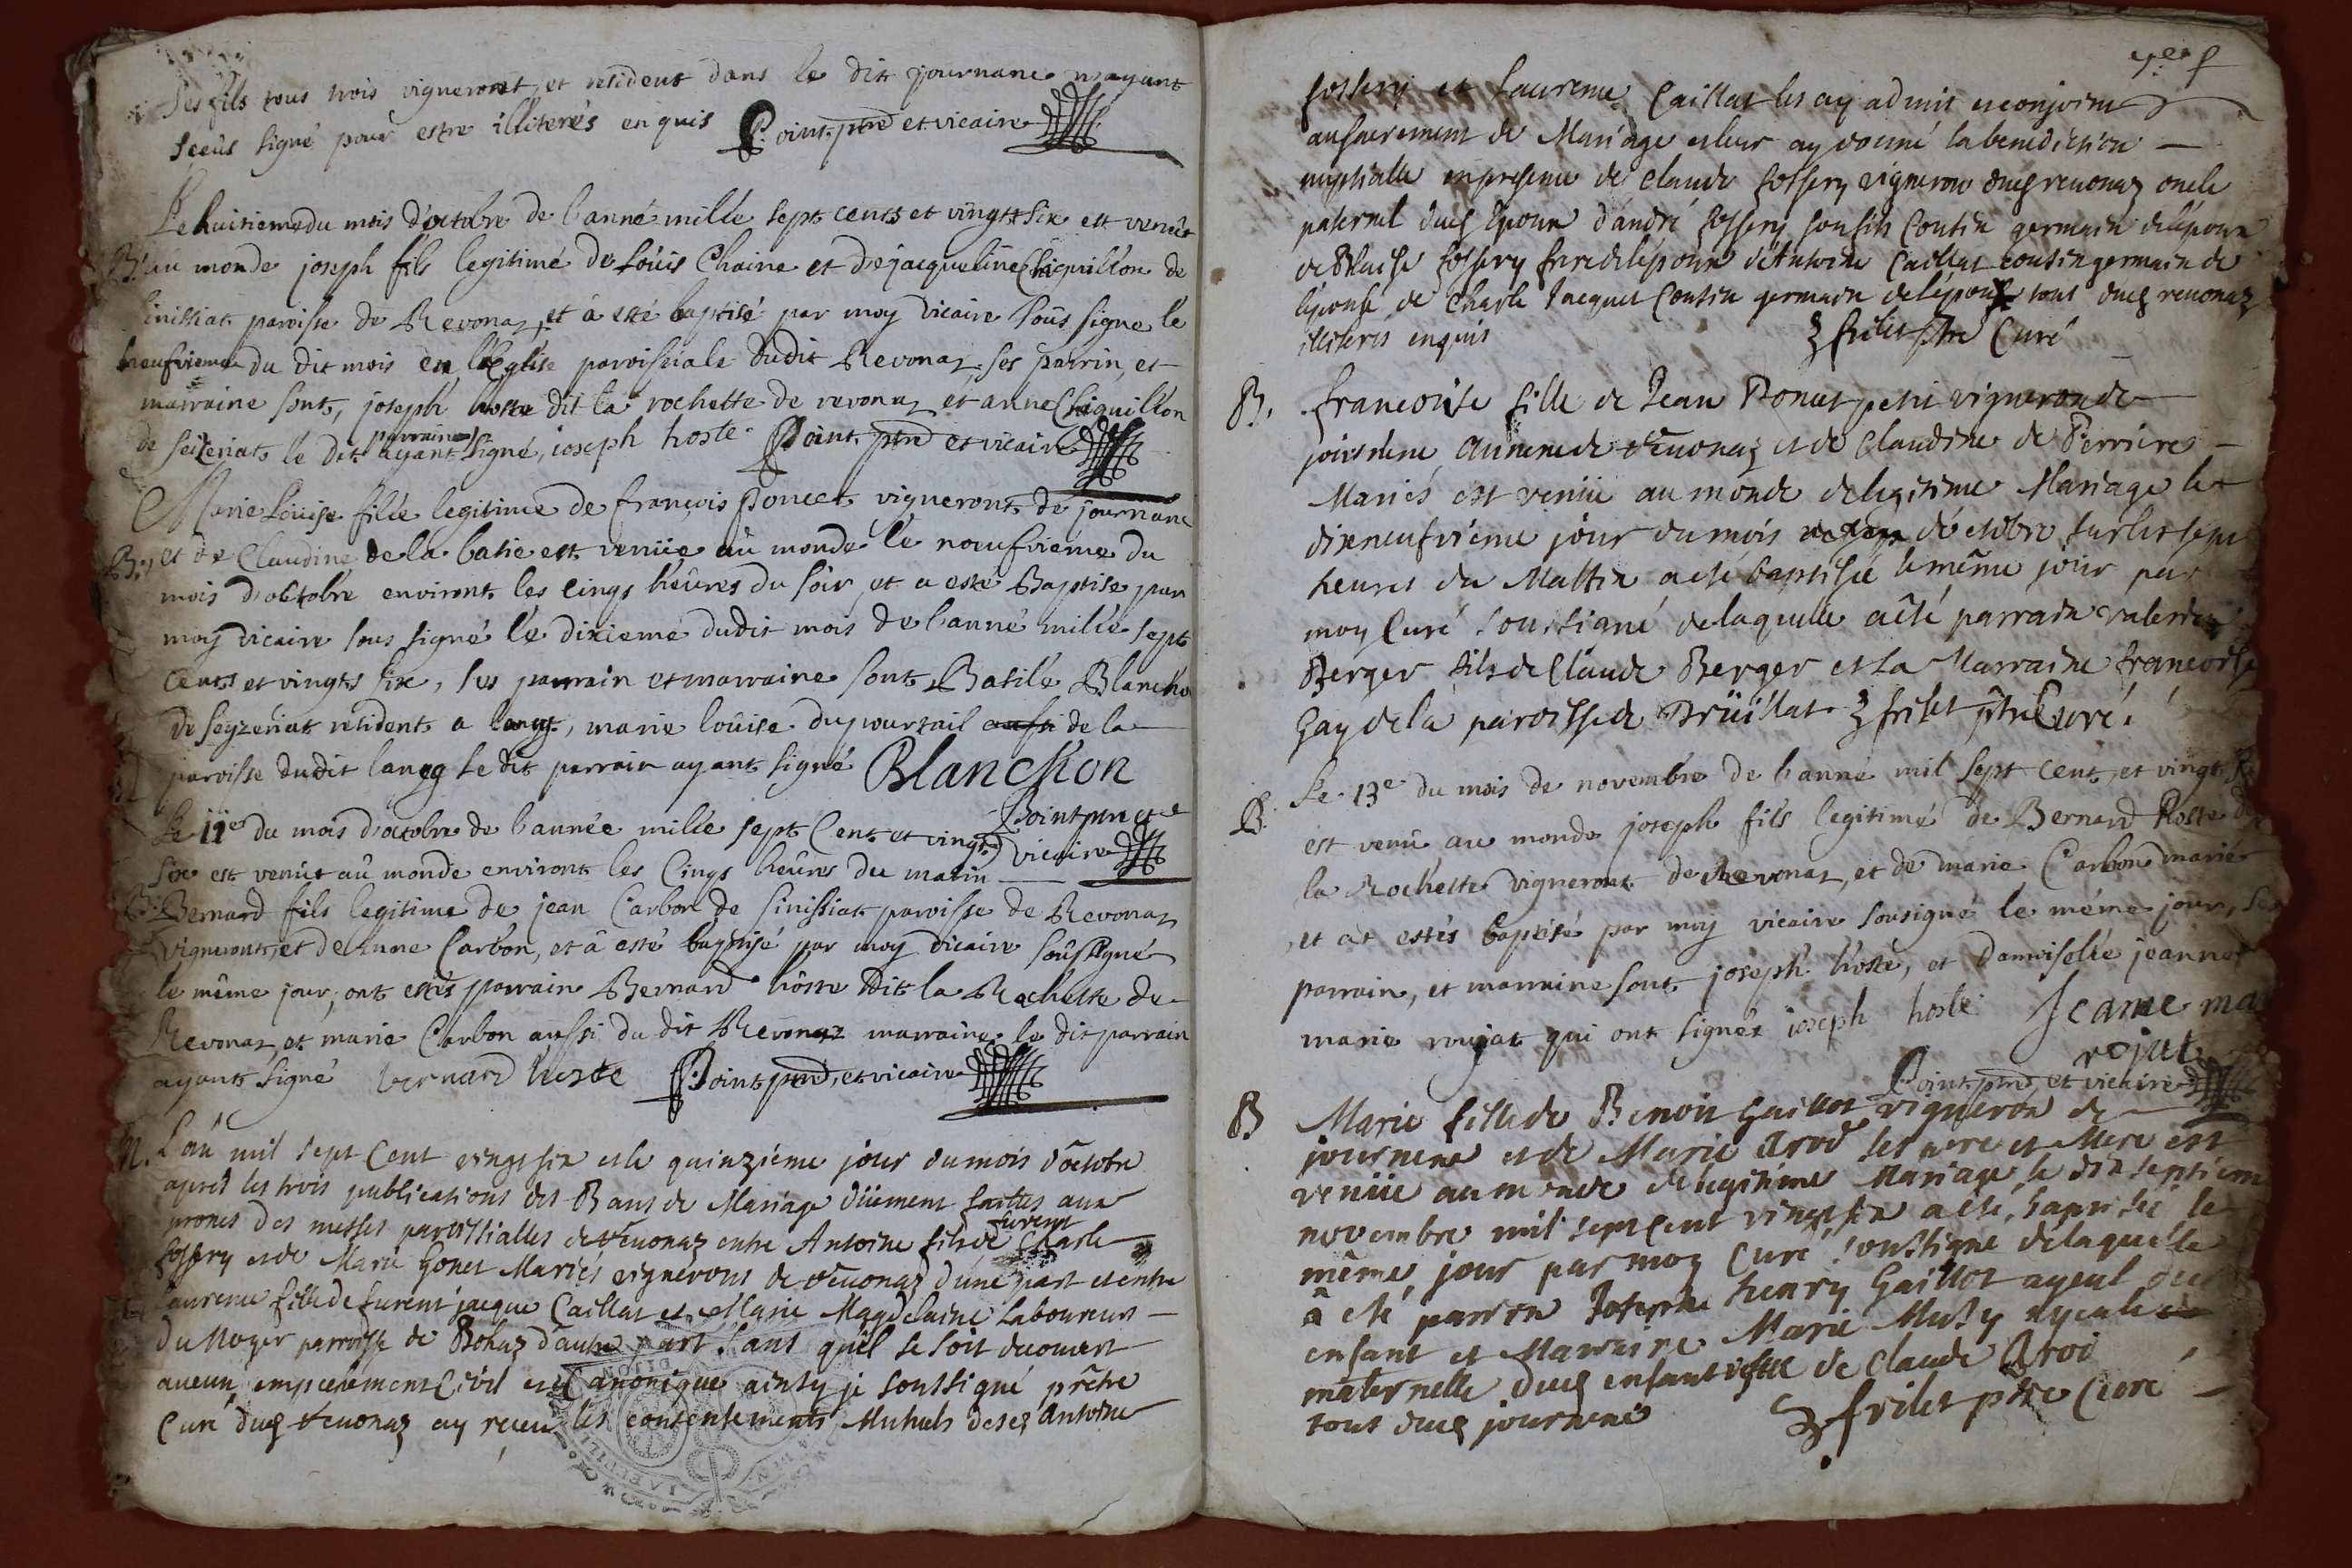 ses fils tous trois vigneront, et resident dans le dit journanc n'ayant
sceüs signé pour estre illiterés enquis P. oint ptre et vicaire
Le huitieme du mois d'octobre de l'anné mille sept cents et vingts six est venüe
B. au monde joseph fils legitimé de Loüis Chaine et de jacqueline Chiquillon de
sinissiat paroisse de Revonaz, et à esté baptisé par moy vicaire soûs signe le
neufvieme du dit mois en l'Eglise paroissiale dudit Revonaz, ses parrin, et
marraine sont, joseph hoste dit la rochette de revonaz et anne Chiquillon
de seizeriat, le dit parrain ayant signé, joseph hoste Point ptre et vicaire
Marie Loüise fille legitime de françois Poncet vigneront de journanc
B. et de Claudine de la batie est venüe aü monde le noeufvieme du
mois d'octobre environt les cinqs heûres du soir, et a esté Baptise par
moy vicaire sous signé le dixieme dudit mois de l'anné mille sept
cents et vingts six, ses parrain et marraine sont, Batile Blancho
de seyzeriat resident a , marie loüise dupourtail aussi de la
paroisse dudit le dit parrain ayant signé Blanchon
Point ptre et
Le 11e du mois d'octobre de l'année mille sept Cent et vingts vicaire
six est venüe aû monde environt les Cinqs heûres du matin
B. Bernard fils legitime de jean Carbon de sinissiat paroisse de Revonaz
vigneront, et de anne Carbon, et â esté baptisé par moy vicaire soûssigné
le même jour, ont estés parrain Bernard hôste dit la Rochette de
Revonaz, et marie Carbon aussi du dit Revonaz marraine le dit parrain
ayant signé bernard hoste Point ptre, et vicaire
M. L'an mil sept Cent vingt six et le quinziéme jour du mois d'octobre
aprés les trois publications des Bans de Mariage düement faites aux
prones des messes paroissialles de revonaz entre Antoine fils de furent Charle
fossery et de Marie Gonet Mariés vignerons de revonaz d'une part et entre
Laurence fille de furent jacque Caillat et Marie Magdelaine Laboureurs
du Noyer parroisse de Bohaz d'autre part sans qu'il se soit decouvert
aucun empechement Civil et Canonique ainsy je soussigné prêtre
Curé dud revonaz ay receu les consentements Mutuels desd Antoine
fossery et Laurence Caillat les ay admis et conjoint
au sacrement de Mariage et leur ay donné la benediction
nuptialle en presence de Claude fossery vigneron dud revonaz oncle
paternel dud Epoux d'andré fossery son fils Cousin germain de l'epoux
de Blaise fossery frere de l'epoux d'Antoine Caillat cousin germain de
l'epouse de Charle Jacquet Cousin germain de l'epoux tous dud revonaz
illiteres enquis frilet ptre Curé
B. francoise fille de Jean Ponet petit vigneron de
journene annexe de revonaz et de Claudine de Perrieres
Mariés est venüe au monde de legitime Mariage le
dixneufviéme jour du mois d'octobre sur les sept
heures du Mattin a eté baptisée le même jour par
moy Curé soussigné de laquelle a êté parrain valerien
Berger fils de Claude Berger et la Marraine francoise
Gay de la paroisse de Drüillat. frilet ptre Curé.
B. Le 13e du mois de novembre de l'anné mil sept cent, et vingt
est venû au monde joseph fils legitimé de Bernard hoste
la Rochette vigneront de Revonaz, et de marie Carbon mariés
, et at estés baptisé par moy vicaire sousigné le méme jour,
parrain, et marraine sont, joseph hoste, et damoiselle jeanne
marie roujat qui ont signés joseph hoste Jeanne ma
rojat
Point ptre et vicaire
B Marie fille de Benoit Gaillot vigneron de
journene et de Marie Arod ses pere et Mere est
venüe au monde de legitime Mariage le dix septieme
novembre mil sept Cent vingt six a eté baptisée le
même jour par moy Curé soussigné de laquelle
a eté parrin henry Gaillot ayeul dud
enfant et Marraine Marie Musy ayeule
maternelle dud enfant de Claude Arod
tous dud journené frilet ptre Curé